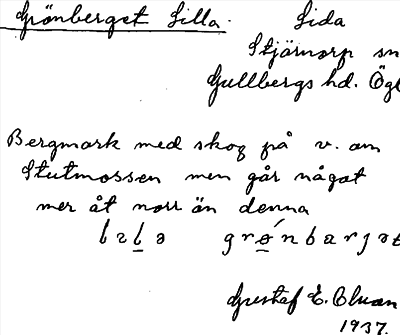 Grönberget Lilla. Lida
Stjärnorp sn
Gullbergs hd. Ögl
Bergmark med skog på v. om
Stutmossen men går något
mer åt norr än denna
Gustaf E. Olsson
1937.